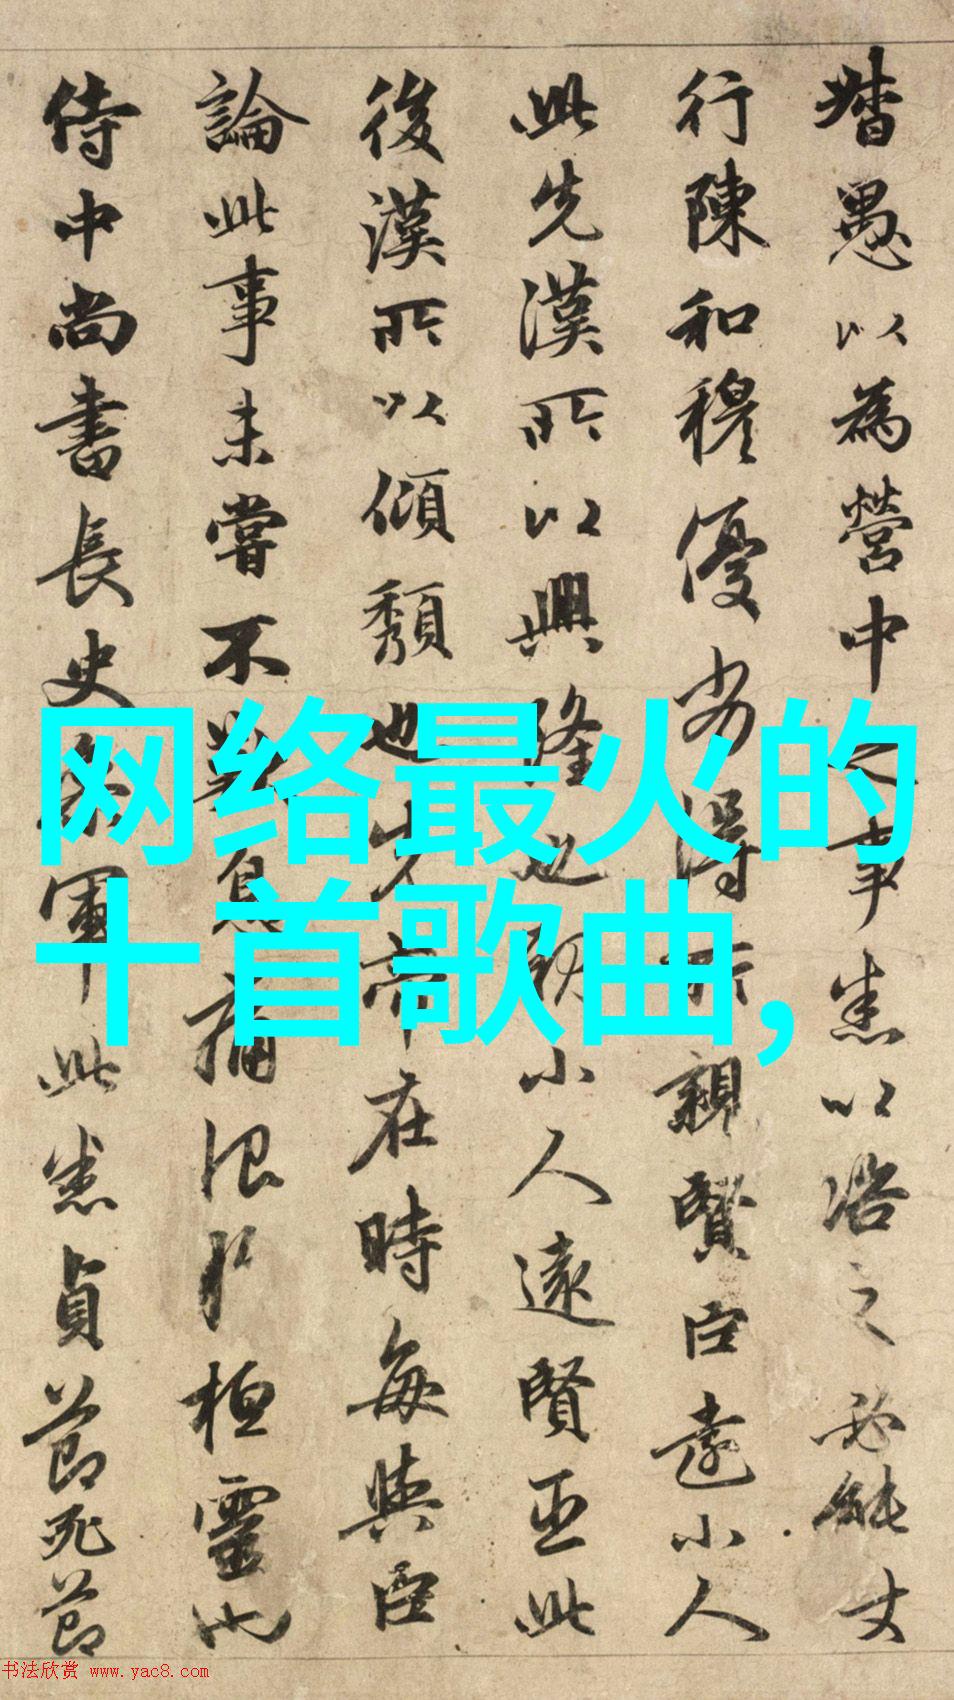 督愚以為營中之事悉以之必能
行陳和穆優劣得所親賢臣遠小人
此先漢所以興隆也親小人遠賢臣此
後漢所以傾頹也先帝在時每與臣
論此事未嘗不歎息痛恨於桓靈也
侍中尚書長史參軍此悉貞節死節
网络最火的
十首歌曲,
书法欣赏 www.yac8.com